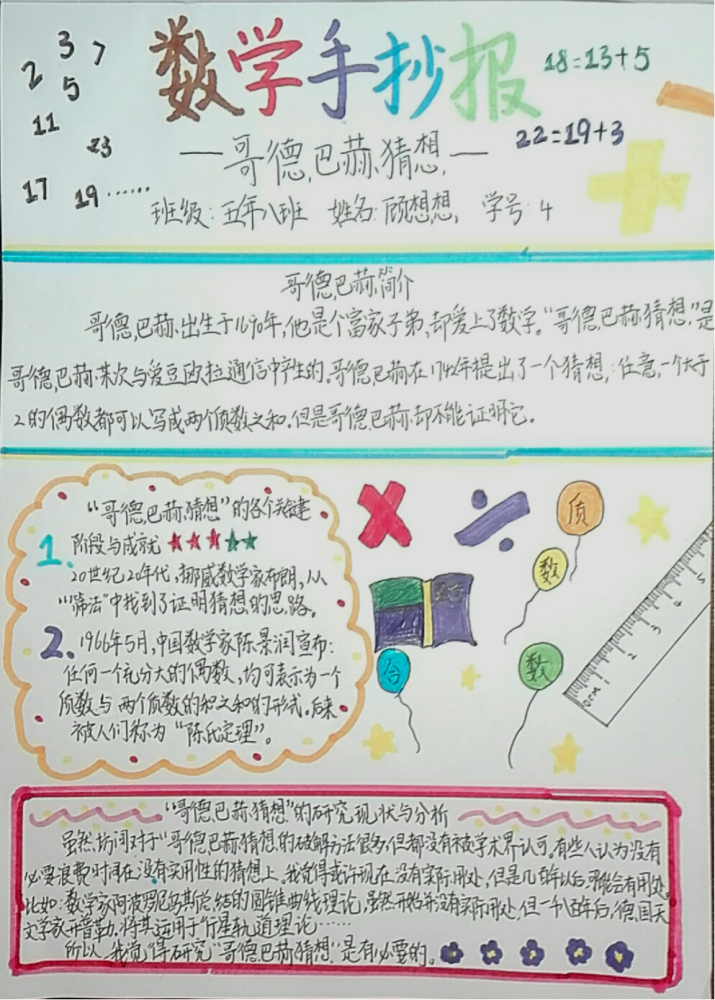 数学手抄报
2 3 7
5
11
23
17 19 ……
18=13+5
22=19+3
—哥德巴赫猜想—
班级:五年八班 姓名:顾想想 学号:4
哥德巴赫简介
哥德巴赫出生于1690年,他是个富家子弟,却爱上了数学。“哥德巴赫猜想”是
哥德巴赫某次与爱豆欧拉通信中产生的。哥德巴赫在1742年提出了一个猜想:任意一个大于
2的偶数都可以写成两个质数之和。但是哥德巴赫却不能证明它。
“哥德巴赫猜想”的各个关键
阶段与成就
1.
20世纪20年代,挪威数学家布朗,从
“筛法”中找到了证明猜想的思路。
2. 1966年5月,中国数学家陈景润宣布:
任何一个充分大的偶数,均可表示为一个
质数与两个质数的积之和的形式。后来
被人们称为“陈氏定理”。
质
数
合
数
“哥德巴赫猜想”的研究现状与分析
虽然坊间对于“哥德巴赫猜想的破解方法很多,但都没有被学术界认可。有些人认为没有
必要浪费时间在没有实用性的猜想上,我觉得或许现在没有实际用处,但是几百年以后可能会有用处。
比如:数学家阿波罗尼乌斯总结的圆锥曲线理论,虽然开始并没有实际用处,但一千八百年后,德国天
文学家开普勒,将其运用于行星轨道理论……
所以,我觉得研究“哥德巴赫猜想”是有必要的。